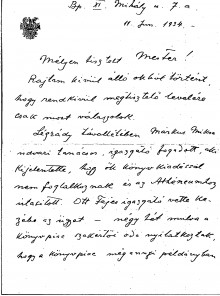 Bp. XI. Mihály u. 7. a
11. Jun. 1934.-
Mélyen tisztelt Mester!
Rajtam kívül álló okból történt,
hogy rendkívül megtisztelő levelére
csak most válaszolok.
Légrády távollétében Márkus Miksa
udvari tanácsos, igazgató fogadott, aki
kijelentette, hogy ők könyvkiadással
nem foglalkoznak és az Athéneumhoz
utasított. Ott Fajcs igazgató vette ke-
zébe az ügyet — négy hét mulva a
könyvpiac szakértői oda nyilatkoztak,
hogy a könyvpiac még annyi példányban